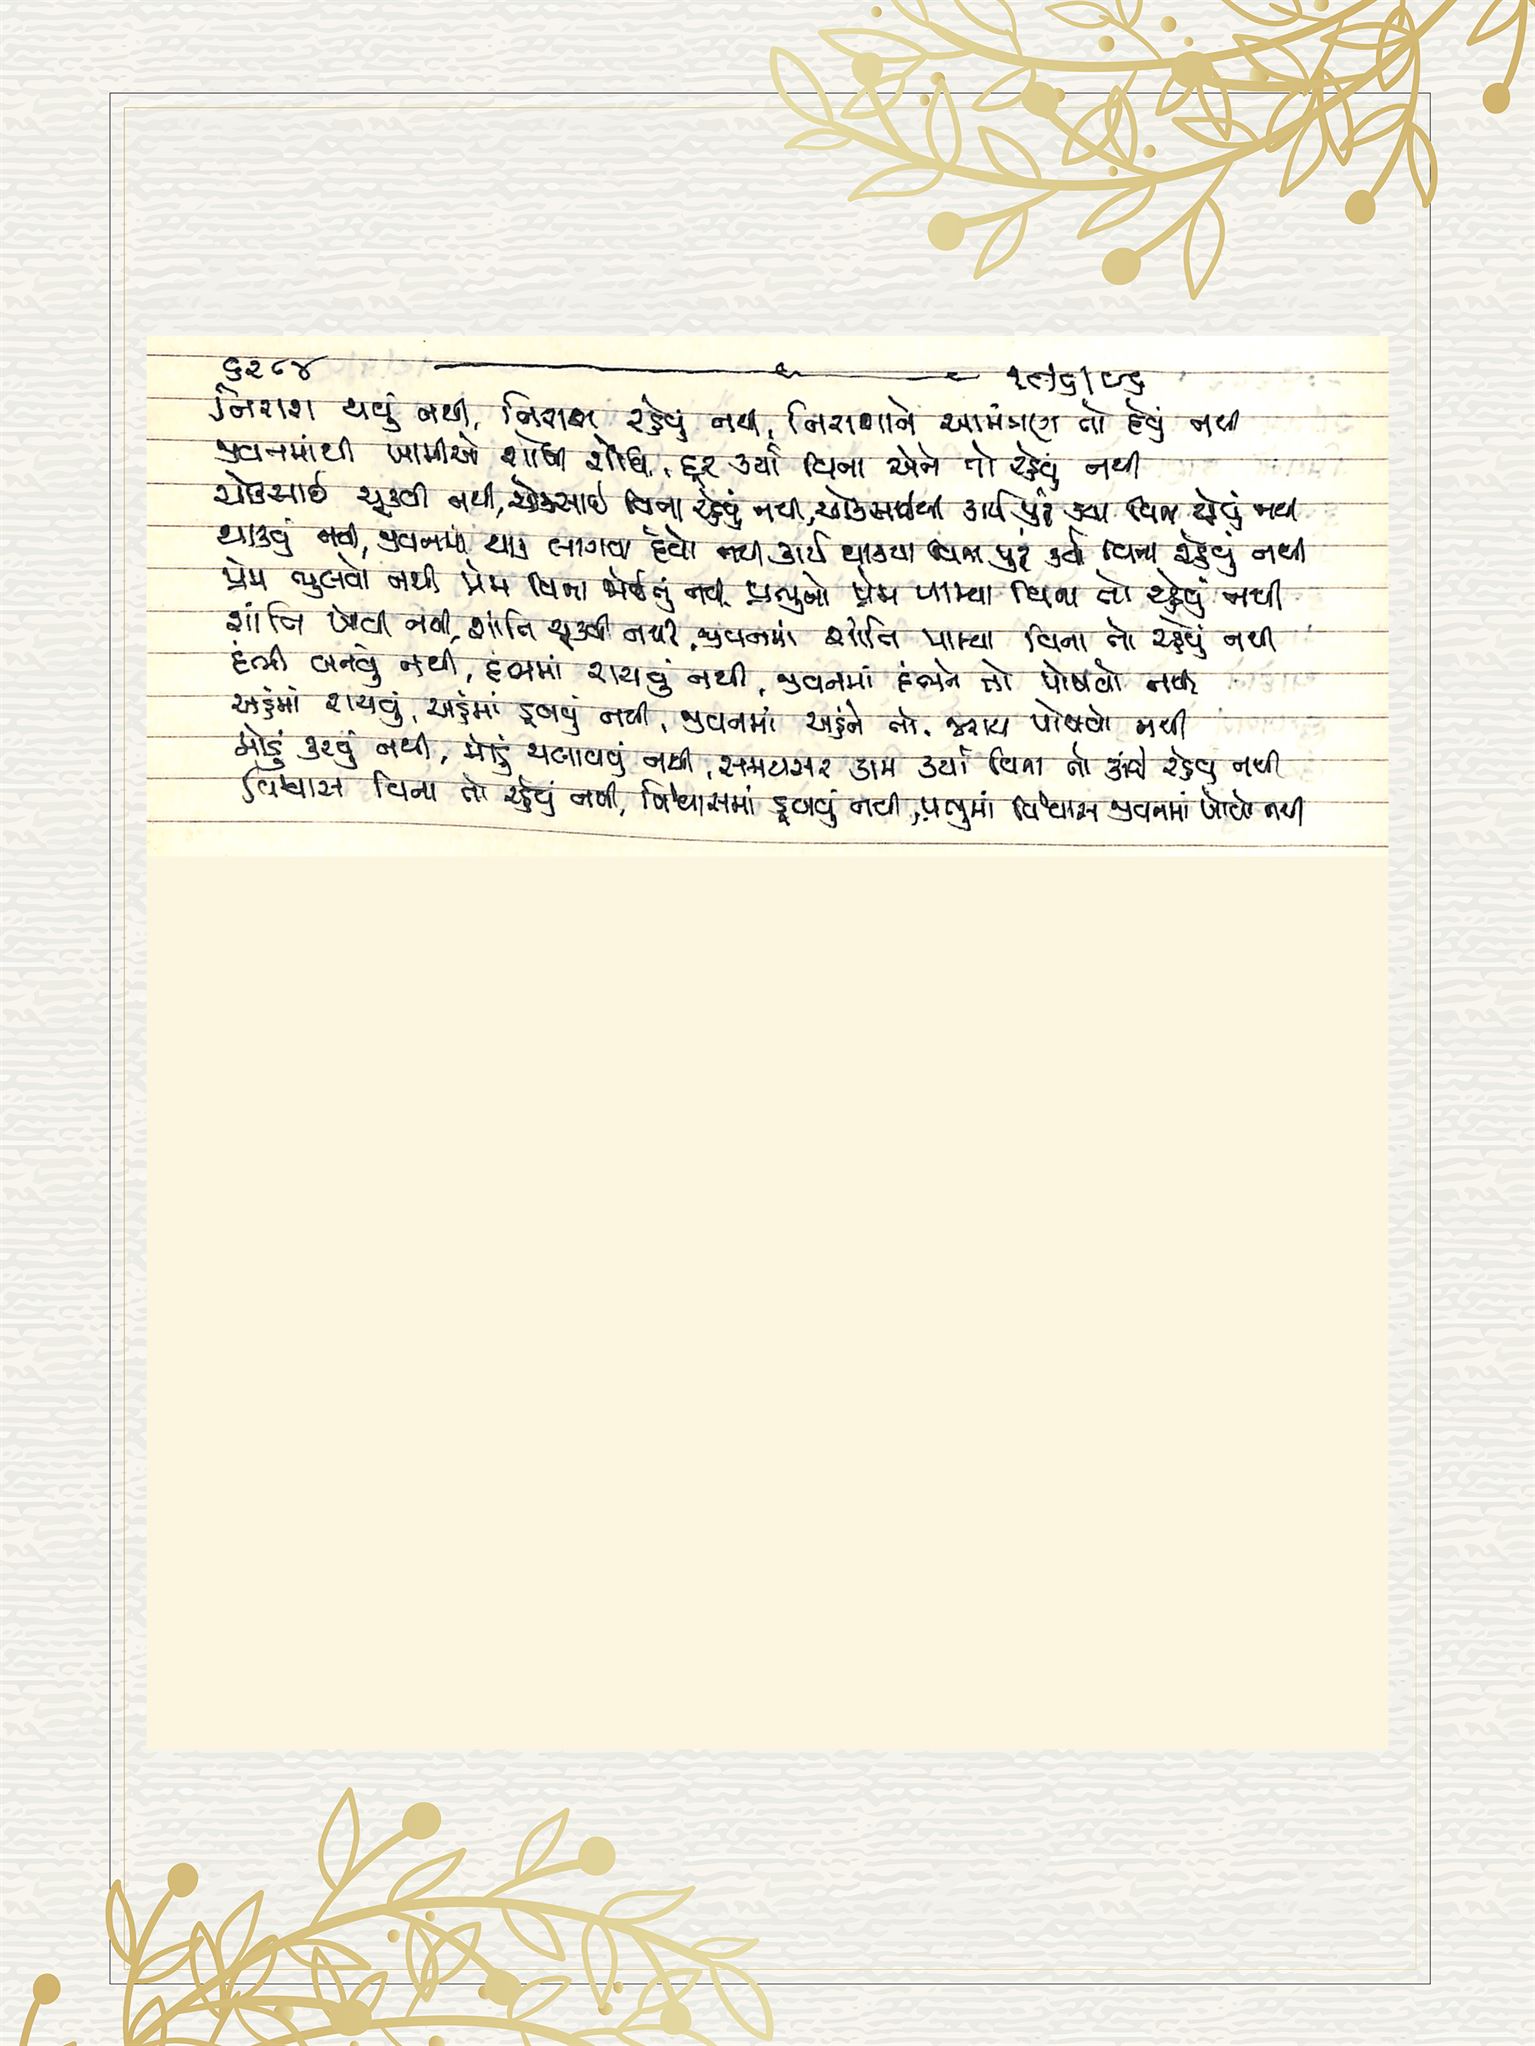 ૬૨૮૪ ૧૯/૬/૯૬
નિરાશ થવું નથી, નિરાશ રહેવું નથી, નિરાશાને આમંત્રણ તો દેવું નથી
જીવનમાંથી ખામીઓ શોધી શોધી, દૂર કર્યા વિના એને તો રહેવું નથી
ચોકસાઈ ચૂકવી નથી, ચોકસાઈ વિના રહેવું નથી, ચોકસાઈથી કાર્ય પુરું કર્યા વિના રહેવું નથી
થાકવું નથી, જીવનમાં થાક લાગવા દેવો નથી કાર્ય થાક્યા વિના પુરું કર્યા વિના રહેવું નથી
પ્રેમ ભુલવો નથી પ્રેમ વિના નથી પ્રભુનો પ્રેમ પામ્યા વિના તો રહેવું નથી
શાંતિ ખોવી નથી, શાંતિ ચૂકવી નથી, જીવનમાં શાંતિ પામ્યા વિના તો રહેવું નથી
દંભી બનવું નથી, દંભમાં રાચવું નથી, જીવનમાં દંભને તો પોષવો નથી
અહંમાં રાચવું, અહંમાં ડૂબવું નથી, જીવનમાં અહંને તો. જરાય પોષવો નથી
મોડું કરવું નથી, મોડું ચલાવવું નથી, સમયસર કામ કર્યા વિના તો કાંઈ રહેવું નથી
વિશ્વાસ વિના તો રહેવું નથી, વિશ્વાસમાં ડૂબવું નથી, પ્રભુમાં વિશ્વાસ જીવનમાં ખોવો નથી